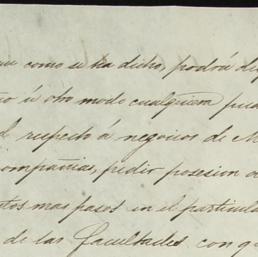 como se ha dicho, podrá
ú otro modo cualquiera
respecto á negocios de M
ompañias, pedir posesion
tos mas pasos en el particula
de las facultades con q